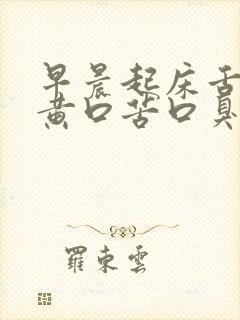 早晨起床舌
黄口苦口臭
羅東雲